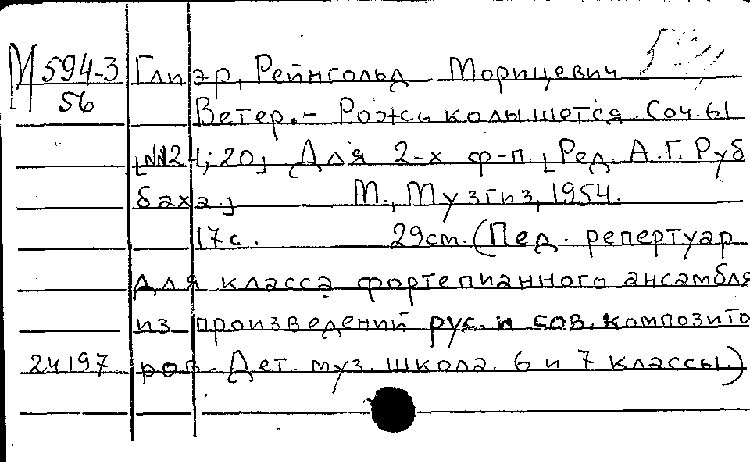 М 594-3 Глиэр, Рейнгольд Морицевич
56 Ветер. - Рожь колышется. Соч. 61
[№№24; 20] Для 2-х ф-п [Ред. А.Г. Руб
баха.] М., Музгиз, 1954.
17с. 29см. (Пед. репертуар
для класса фортепианного ансамбля
из произведений рус. и сов. композито
24197 ров. Дет. муз. школа. 6 и 7 классы)